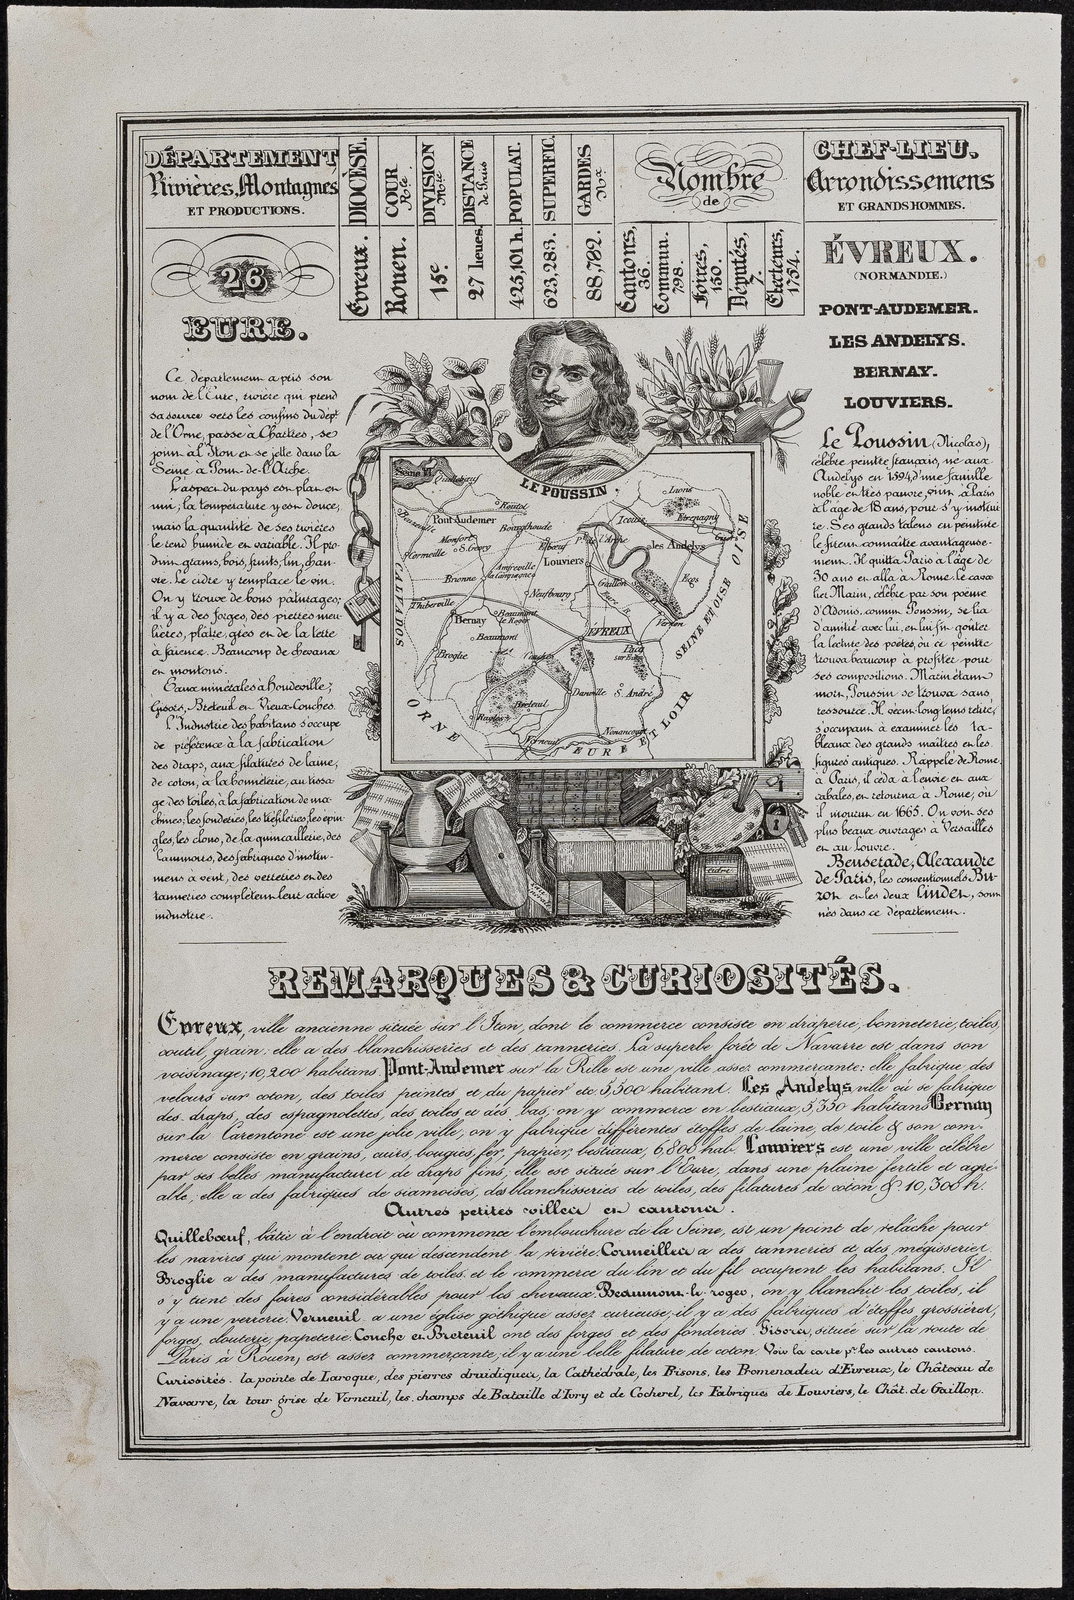 DÉPARTEMENT
Rivières, Montagnes
ET PRODUCTIONS.
DIOCÈSE.
COUR Rle.
DIVISION Mre
DISTANCE de Paris
POPULAT.
SUPERFIC.
GARDES Nx
Nombre
de
CHEF-LIEU.
Arrondissemens
ET GRANDS HOMMES.
Évreux.
Rouen.
15e.
27 lieues.
425,101 h.
623,283.
88,782.
Cantons, 36.
Commun. 798.
Foires, 150.
Députés, 7.
Electeurs, 1754.
26
EURE.
Ce département a pris son
nom de l'Eure, rivière qui prend
sa source vers les confins du dept
de l'Orne, passe à Chartres, se
joint al'Iton et se jette dans la
Seine à Pont-de-l'Arche.
L'aspect du pays est plat et
uni; la température y est douce,
mais la quantité de ses rivières
le rend humide et variable. Il pro-
duit grains, bois, fruits, lin, chan-
vre. Le cidre y remplace le vin.
On y trouve de bons pâturages;
il y a des forges, des pierres meu-
lières, plâtre, grès et de la terre
à faïence. Beaucoup de chevaux
et moutons.
Eaux minérales à Houdeville;
Gisors, Breteuil et Vieux-Conches.
L'Industrie des habitans s'occupe
de préférence à la fabrication
des draps, aux filatures de laine;
de coton, à la bonneterie, au tissa-
ge des toiles, à la fabrication de ma-
chines; les fonderies, les tréfileries, les épin-
gles, les clous, de la quincaillerie, des
laminoirs, des fabriques d'instru-
mens à vent, des verreries et des
tanneries complètent leur active
industrie.
LE POUSSIN
Quilleboeuf
Routot
Pont Audemer
Bourgthoude
Monfort
S. Georg
Cormeille
Elbeuf
Louviers
Lions
Etrepagny
les Andelys
Gisors
Brionne
Amfreville la Campagne
Gaillon
Eggs
Thiberville
Neufbourg
Beaumont le Roger
Bernay
Beaumont
ÉVREUX
Vernon
Broglie
Conches
Pacy sur Eure
Danville
S. André
Breteuil
Rugles
Verneuil
Nonancourt
CALVADOS
ORNE
EURE ET LOIR
SEINE ET OISE
cidre
ÉVREUX.
(NORMANDIE.)
PONT-AUDEMER.
LES ANDELYS.
BERNAY.
LOUVIERS.
Le Poussin (Nicolas),
célèbre peintre français, né aux
Andelys en 1594, d'une famille
noble et très pauvre, vint à Paris
à l'âge de 18 ans, pour s'y instrui
re. Ses grands talens en peinture
le firent connaître avantageuse-
ment. Il quitta Paris à l'âge de
30 ans et alla à Rome le cava
lier Marin, célèbre par son poème
d'Adonis, connut Poussin, se lia
d'amitié avec lui, et lui fit goûter
la lecture des poètes, où ce peintre
trouva beaucoup à profiter pour
ses compositions. Marin étant
mort, Poussin se trouva sans
ressource. Il vécut long-temps retiré,
s'occupant à examiner les ta-
bleaux des grands maîtres et les
figures antiques. Rappelé de Rome
à Paris, il céda à l'envie et aux
cabales, et retourna à Rome, où
il mourut en 1665. On voit ses
plus beaux ouvrages à Versailles
et au Louvre.
Benserade, Alexandre
de Paris, les conventionnels Bu-
zot et les deux Lindet, sont
nés dans ce département.
REMARQUES & CURIOSITÉS.
Evreux, ville ancienne située sur l'Iton, dont le commerce consiste en draperie, bonneterie, toiles,
coutil, grain. elle a des blanchisseries et des tanneries. La superbe forêt de Navarre est dans son
voisinage; 10,200 habitans. Pont-Audemer sur la Rille est une ville assez commerçante: elle fabrique des
velours sur coton, des toiles peintes et du papier etc 5,500 habitant. Les Andelys ville où se fabrique
des draps, des espagnolettes, des toiles et des bas; on y commerce en bestiaux, 5,350 habitans Bernay
sur la Carentone est une jolie ville, on y fabrique différentes étoffes de laine, de toile & son com-
merce consiste en grains, cuirs, bougies, fer, papier, bestiaux, 6,800 hab. Louviers est une ville célèbre
par ses belles manufactures de draps fins, elle est située sur l'Eure, dans une plaine fertile et agré-
able; elle a des fabriques de siamoises, des blanchisseries de toiles, des filatures de coton & 10,300 h.
Autres petites villes et cantons.
Quillebœuf, bâtie à l'endroit où commence l'embouchure de la Seine, est un point de relâche pour
les navires qui montent ou qui descendent la rivière. Cormeilles a des tanneries et des mégisseries.
Broglie a des manufactures de toiles et le commerce du lin et du fil occupent les habitans. Il
s'y tient des foires considérables pour les chevaux. Beaumont-le-roger, on y blanchit les toiles, il
y a une verrerie. Verneuil a une église gothique assez curieuse; il y a des fabriques d'étoffes grossières,
forges, clouterie, papeterie. Couche et Breteuil ont des forges et des fonderies. Gisors, située sur la route de
Paris à Rouen, est assez commerçante; il y a une belle filature de coton. Voir la carte pr les autres cantons.
Curiosités. la pointe de Laroque, des pierres druidiques, la Cathédrale, les Bisons, les Promenades d'Evreux, le Château de
Navarre, la tour grise de Verneuil, les champs de Bataille d'Ivry et de Cocherel, les Fabriques de Louviers, le Chât. de Gaillon.